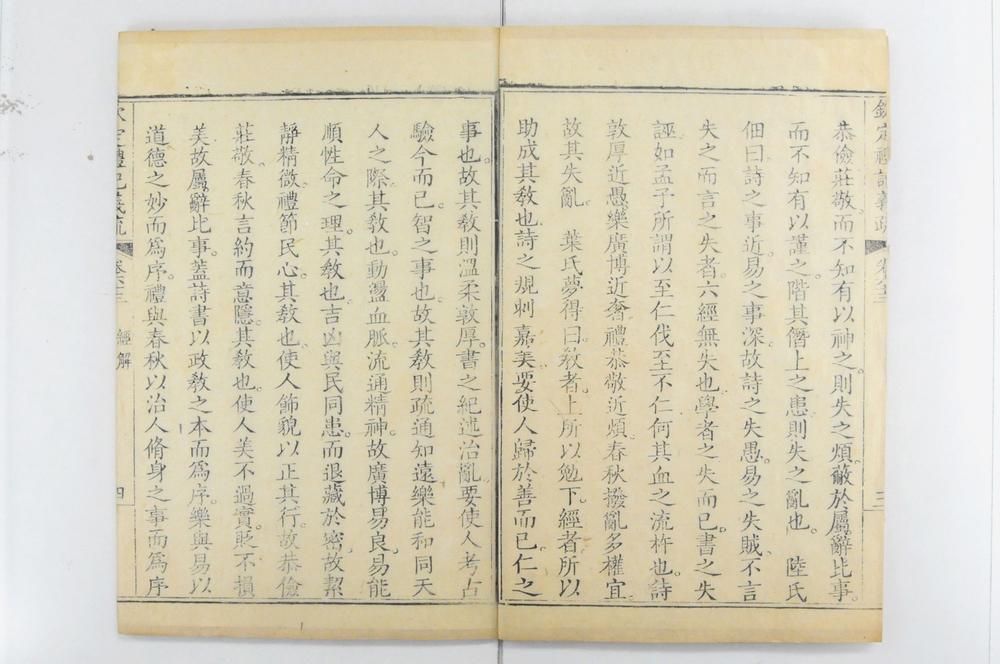 欽定禮記義疏 卷六十三 經解 三
恭儉莊敬而不知有以神之則失之煩蔽於屬辭比事
而不知有以謹之階其僭上之患則失之亂也 陸氏
佃曰詩之事近易之事深故詩之失愚易之失賊不言
失之而言之失者六經無失也學者之失而已書之失
誣如孟子所謂以至仁伐至不仁何其血之流杵也詩
敦厚近愚樂廣博近奢禮恭敬近煩春秋撥亂多權宜
故其失亂 葉氏夢得曰敎者上所以勉下經者所以
助成其敎也詩之規刺嘉美要使人歸於善而已仁之
事也故其敎則溫柔敦厚書之紀述治亂要使人考古
驗今而已智之事也故其敎則疏通知遠樂能和同天
人之際其敎也動盪血脈流通精神故廣博易良易能
順性命之理其敎也吉凶與民同患而退藏於密故絜
靜精微禮節民心其敎也使人飾貌以正其行故恭儉
莊敬春秋言約而意隱其敎也使人美不過實貶不損
美故屬辭比事蓋詩書以政敎之本而爲序樂與易以
道德之妙而爲序禮與春秋以治人脩身之事而爲序
欽定禮記義疏 卷六十三 經解 四